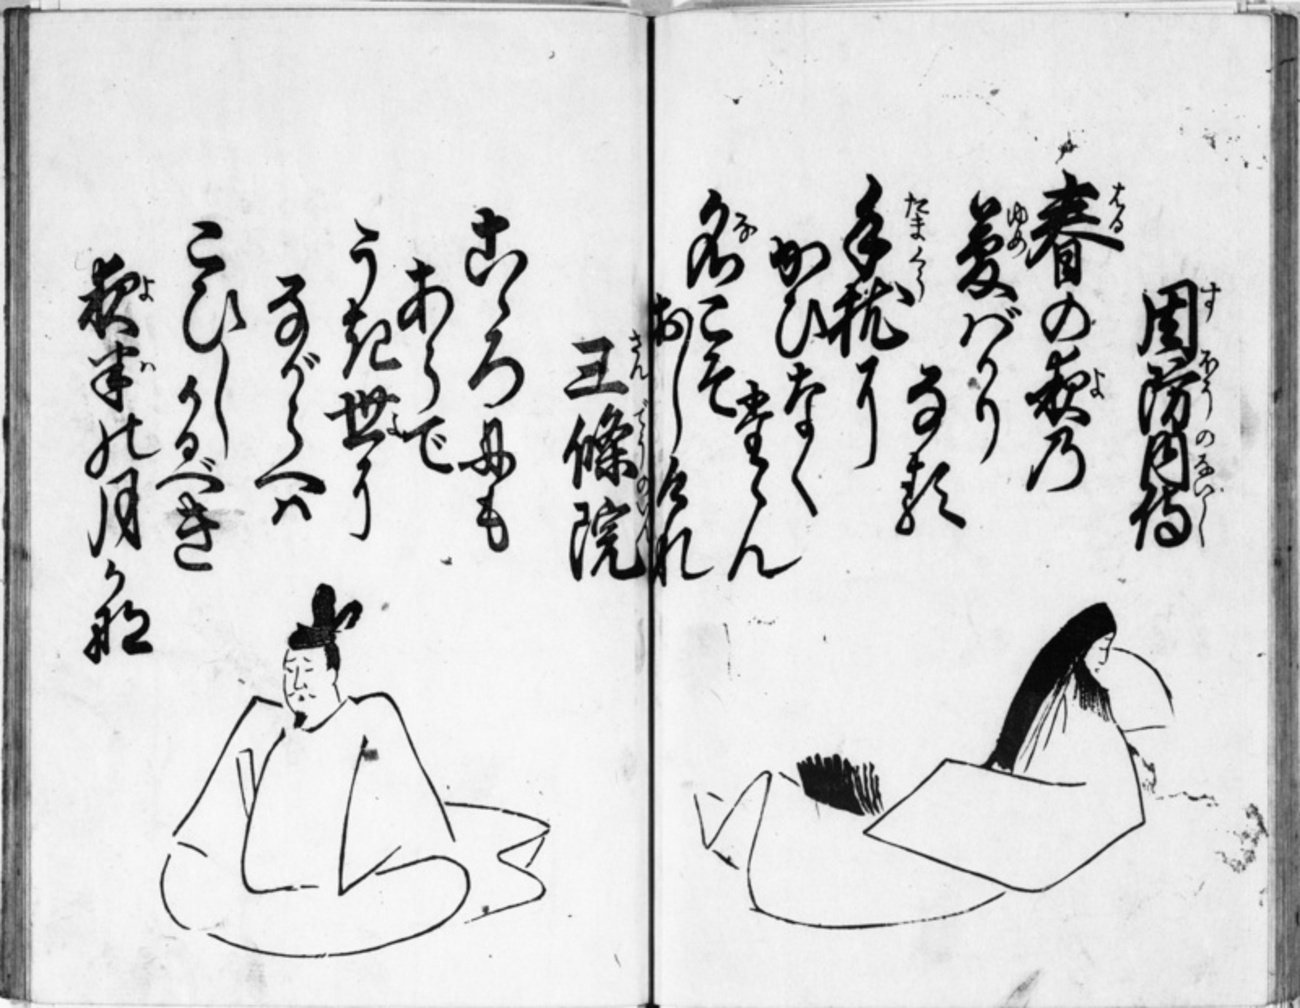 周防内侍
春の夜乃
夢バかり
なる
手枕に
かひなく
たゝん
名こそ
おしけれ
三條院
こゝろにも
あらで
うき世に
ながらへハ
こひしかるべき
夜半の月かな